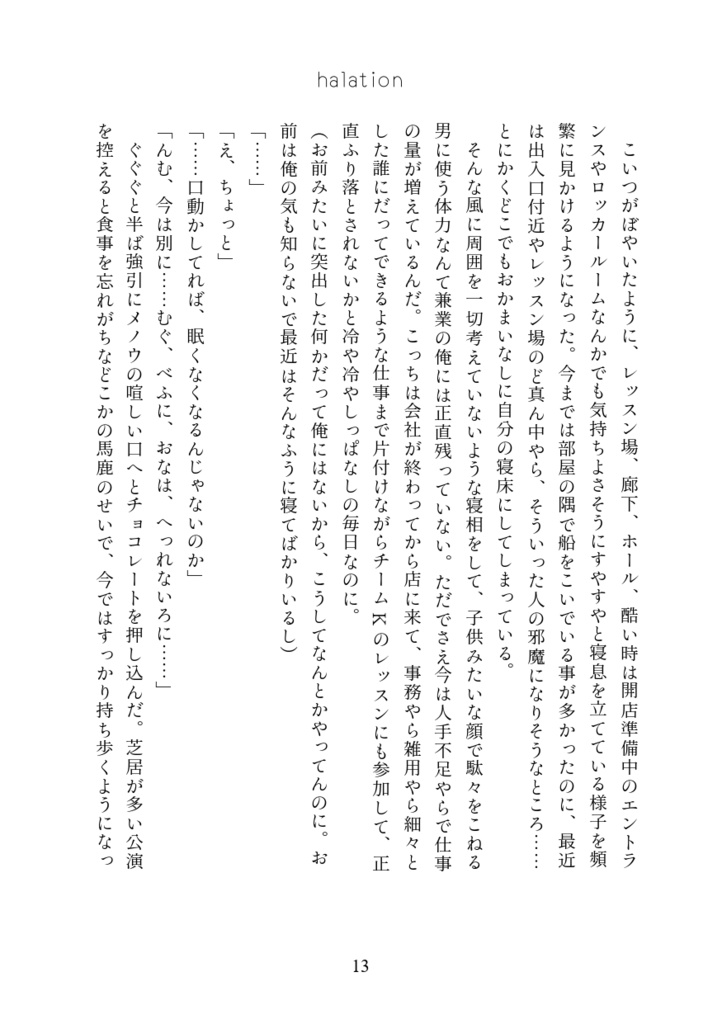 halation
　こいつがぼやいたように、レッスン場、廊下、ホール、酷い時は開店準備中のエントラ
ンスやロッカールームなんかでも気持ちよさそうにすやすやと寝息を立てている様子を頻
繁に見かけるようになった。今までは部屋の隅で船をこいでいる事が多かったのに、最近
は出入口付近やレッスン場のど真ん中やら、そういった人の邪魔になりそうなところ……
とにかくどこでもおかまいなしに自分の寝床にしてしまっている。
　そんな風に周囲を一切考えていないような寝相をして、子供みたいな顔で駄々をこねる
男に使う体力なんて兼業の俺には正直残っていない。ただでさえ今は人手不足やらで仕事
の量が増えているんだ。こっちは会社が終わってから店に来て、事務やら雑用やら細々と
した誰にだってできるような仕事まで片付けながらチームKのレッスンにも参加して、正
直ふり落とされないかと冷や冷やしっぱなしの毎日なのに。
（お前みたいに突出した何かだって俺にはないから、こうしてなんとかやってんのに。お
前は俺の気も知らないで最近はそんなふうに寝てばかりいるし）
「……」
「え、ちょっと」
「……口動かしてれば、眠くなくなるんじゃないのか」
「んむ、今は別に……むぐ、べふに、おなは、へっれないろに……」
　ぐぐぐと半ば強引にメノウの喧しい口へとチョコレートを押し込んだ。芝居が多い公演
を控えると食事を忘れがちなどこかの馬鹿のせいで、今ではすっかり持ち歩くようになっ
13